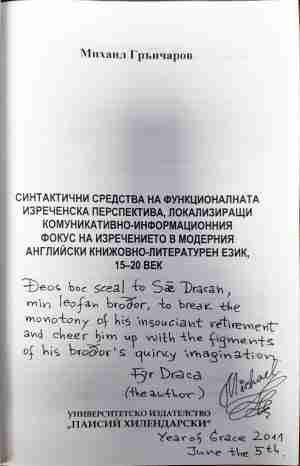 Михаил Грънчаров
СИНТАКТИЧНИ СРЕДСТВА НА ФУНКЦИОНАЛНАТА
ИЗРЕЧЕНСКА ПЕРСПЕКТИВА, ЛОКАЛИЗИРАЩИ
КОМУНИКАТИВНО-ИНФОРМАЦИОННИЯ
ФОКУС НА ИЗРЕЧЕНИЕТО В МОДЕРНИЯ
АНГЛИЙСКИ КНИЖОВНО-ЛИТЕРАТУРЕН ЕЗИК,
15–20 ВЕК
Ðeos boc sceal to Sǣ Dracan,
min leofan broðor, to break the
monotony of his insouciant retirement
and cheer him up with the figments
of his broðor's quirky imagination.
Fȳr Draca
(the author)
Michael
УНИВЕРСИТЕТСКО ИЗДАТЕЛСТВО
„ПАИСИЙ ХИЛЕНДАРСКИ“
Year of Grace 2011
June the 5th.